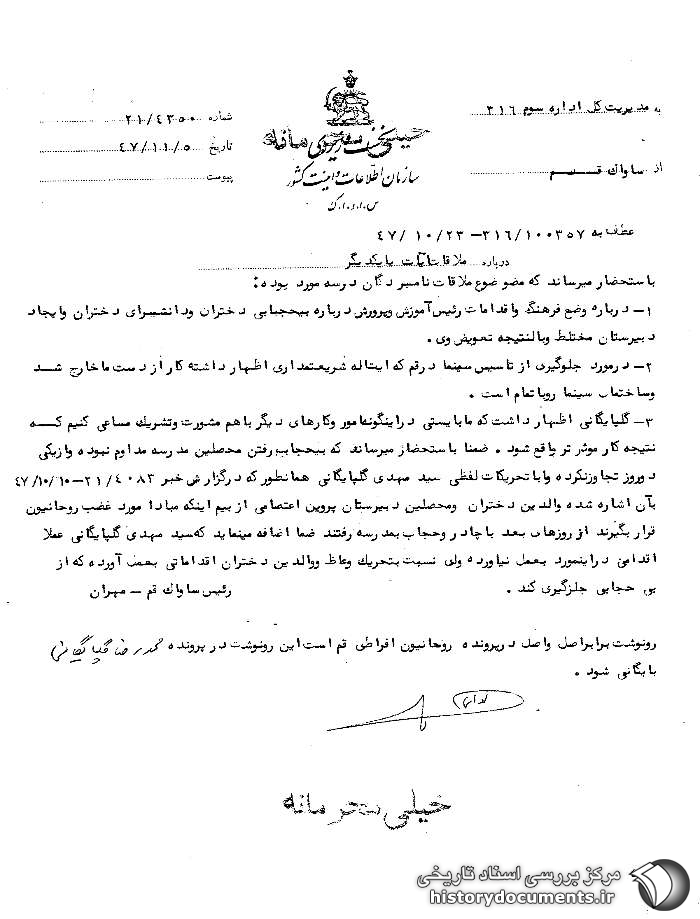 به مدیریت کل اداره سوم ۳۱۶
شماره ۲۱/۴۳۵۰
خیلی محرمانه
از ساواک قم
تاریخ ۴۷/۱۱/۵
سازمان اطلاعات و امنیت کشور
پیوست
س.ا.و.ا.ک
عطف به ۳۱۶/۱۰۰۳۵۷ - ۴۷/۱۰/۲۳
درباره ملاقات آیات با یکدیگر
با ستحضار میرساند که موضوع ملاقات نامبردگان درسه مورد بوده :
۱- درباره وضع فرهنگ واقدامات رئیس آموزش وپرورش درباره بیحجابی دختران ودانشسرای دختران وایجاد
دبیرستان مختلط وبالنتیجه تعویض وی .
۲- درمورد جلوگیری از تاسیس سینما درقم که ایتاله شریعتمداری اظهار داشته کار از دست ماخارج شد
وساختمان سینما روبا تمام است .
۳- گلپایگانی اظهار داشت که مابایستی دراینگونه امور وکارهای دیگر با هم مشورت وتشریک مساعی کنیم کـه
نتیجه کار موثر تر واقع شود . ضمنا با ستحضار میرساند که بیحجاب رفتن محصلین مدرسه مداوم نبوده وازیکی
دوروز تجاوزنکرده وبا تحریکات لفظی سید مهدی گلپایگانی همانطور که درگزارش خبر ۲۱/۴۰۸۳-۴۷/۱۰/۱۰
بآن اشاره شده والدین دختران ومحصلین دبیرستان پروین اعتصامی از بیم اینکه مبادا مورد غضب روحانیون
قرار بگیرند از روزهای بعد با چادر وحجاب بمدرسه رفتند ضما اضافه مینماید که سید مهدی گلپایگانی عملا
اقدامی دراینمورد بعمل نیاورده ولی نسبت بتحریک وعاظ ووالدین دختران اقداماتی بعمل آورده که از
بی حجابی جلوگیری کند .
رئیس ساواک قم - مهران
رونوشت برابراصل واصل درپرونده روحانیون افراطی قم است این رونوشت در پرونده محمدرضا گلپایگانی
بایگانی شود .
خیلی محرمانه
مرکز بررسی اسناد تاریخی
historydocuments.ir